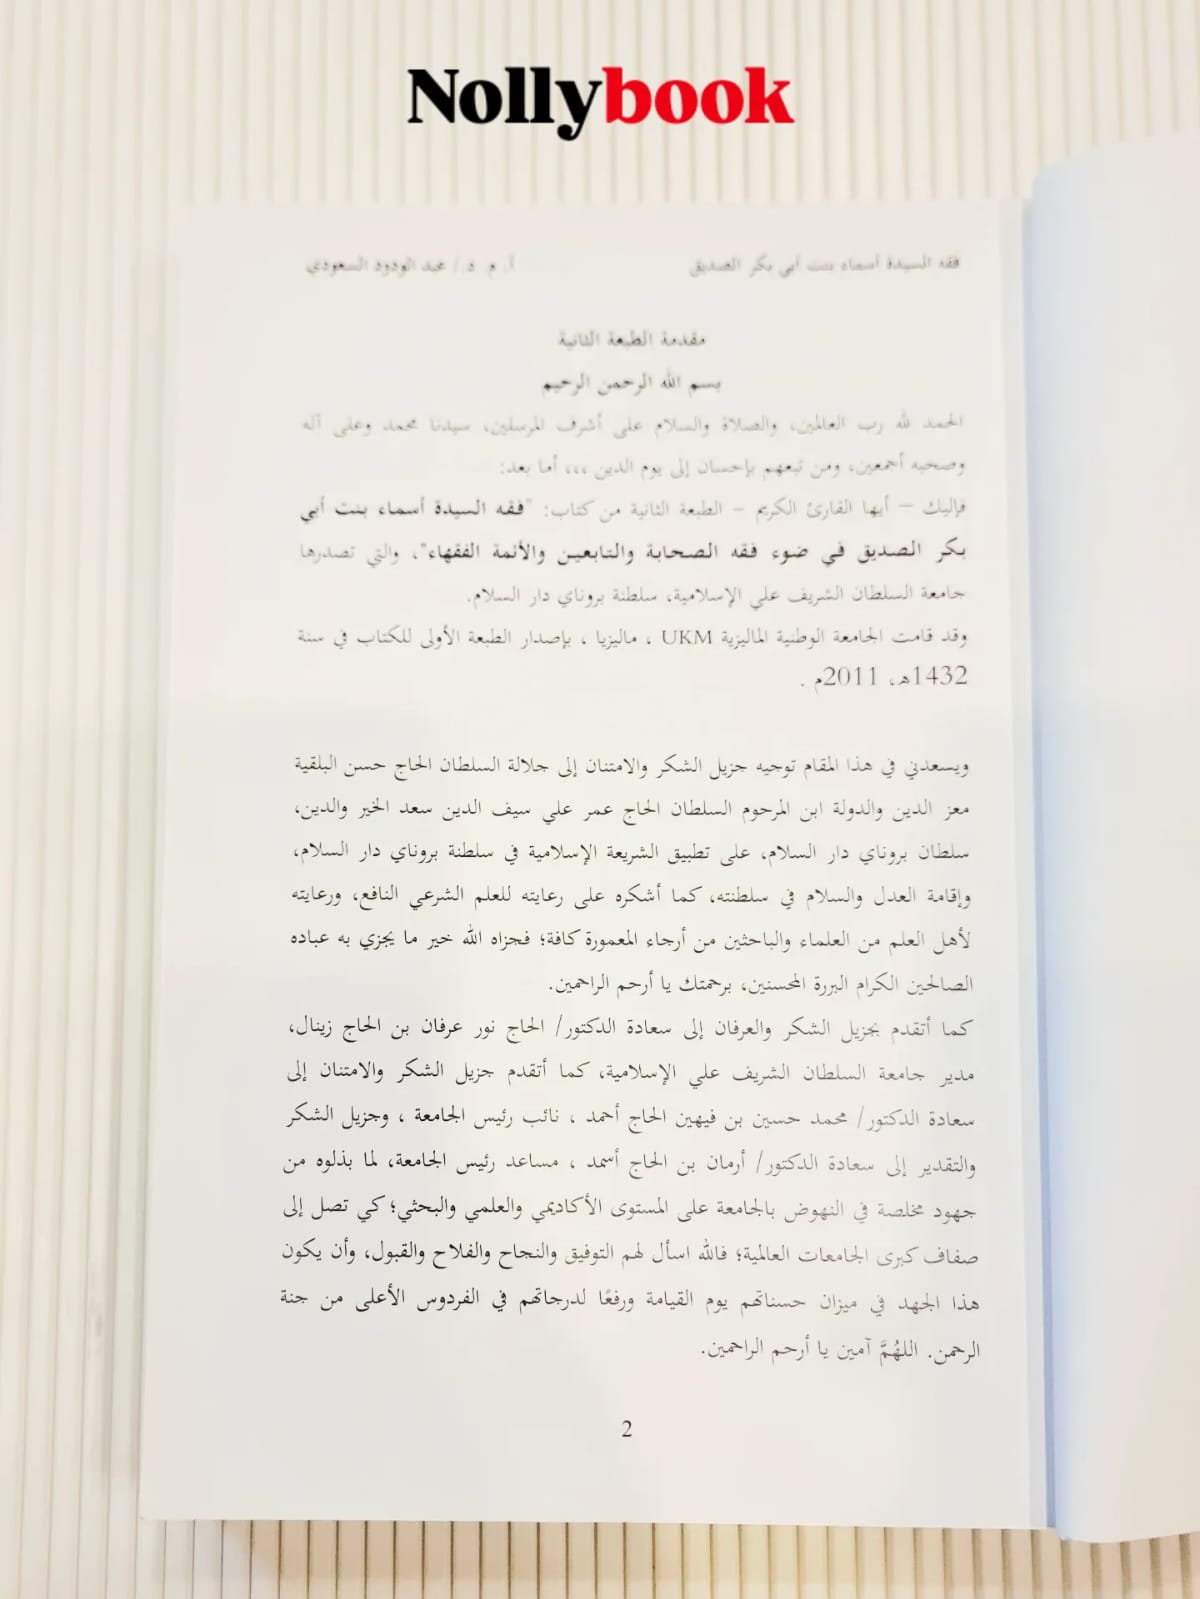 Nollybook
فقه السيدة أسماء بنت أبي بكر الصديق
أ. م. د./ عبد الودود السعودي
مقدمة الطبعة الثانية
بسم الله الرحمن الرحيم
الحمد لله رب العالمين، والصلاة والسلام على أشرف المرسلين، سيدنا محمد وعلى آله
وصحبه أجمعين، ومن تبعهم بإحسان إلى يوم الدين ،،، أما بعد:
فإليك – أيها القارئ الكريم – الطبعة الثانية من كتاب: "فقه السيدة أسماء بنت أبي
بكر الصديق في ضوء فقه الصحابة والتابعين والأئمة الفقهاء"، والتي تصدرها
جامعة السلطان الشريف علي الإسلامية، سلطنة بروناي دار السلام.
وقد قامت الجامعة الوطنية الماليزية UKM ، ماليزيا ، بإصدار الطبعة الأولى للكتاب في سنة
1432هـ، 2011م .
ويسعدني في هذا المقام توجيه جزيل الشكر والامتنان إلى جلالة السلطان الحاج حسن البلقية
معز الدين والدولة ابن المرحوم السلطان الحاج عمر علي سيف الدين سعد الخير والدين،
سلطان بروناي دار السلام، على تطبيق الشريعة الإسلامية في سلطنة بروناي دار السلام،
وإقامة العدل والسلام في سلطنته، كما أشكره على رعايته للعلم الشرعي النافع، ورعايته
لأهل العلم من العلماء والباحثين من أرجاء المعمورة كافة؛ فجزاه الله خير ما يجزي به عباده
الصالحين الكرام البررة المحسنين، برحمتك يا أرحم الراحمين.
كما أتقدم بجزيل الشكر والعرفان إلى سعادة الدكتور/ الحاج نور عرفان بن الحاج زينال،
مدير جامعة السلطان الشريف علي الإسلامية، كما أتقدم جزيل الشكر والامتنان إلى
سعادة الدكتور/ محمد حسين بن فيهين الحاج أحمد ، نائب رئيس الجامعة ، وجزيل الشكر
والتقدير إلى سعادة الدكتور/ أرمان بن الحاج أسمد ، مساعد رئيس الجامعة، لما بذلوه من
جهود مخلصة في النهوض بالجامعة على المستوى الأكاديمي والعلمي والبحثي؛ كي تصل إلى
صفاف كبرى الجامعات العالمية؛ فالله اسأل لهم التوفيق والنجاح والفلاح والقبول، وأن يكون
هذا الجهد في ميزان حسناتهم يوم القيامة ورفعًا لدرجاتهم في الفردوس الأعلى من جنة
الرحمن. اللهُمَّ آمين يا أرحم الراحمين.
2